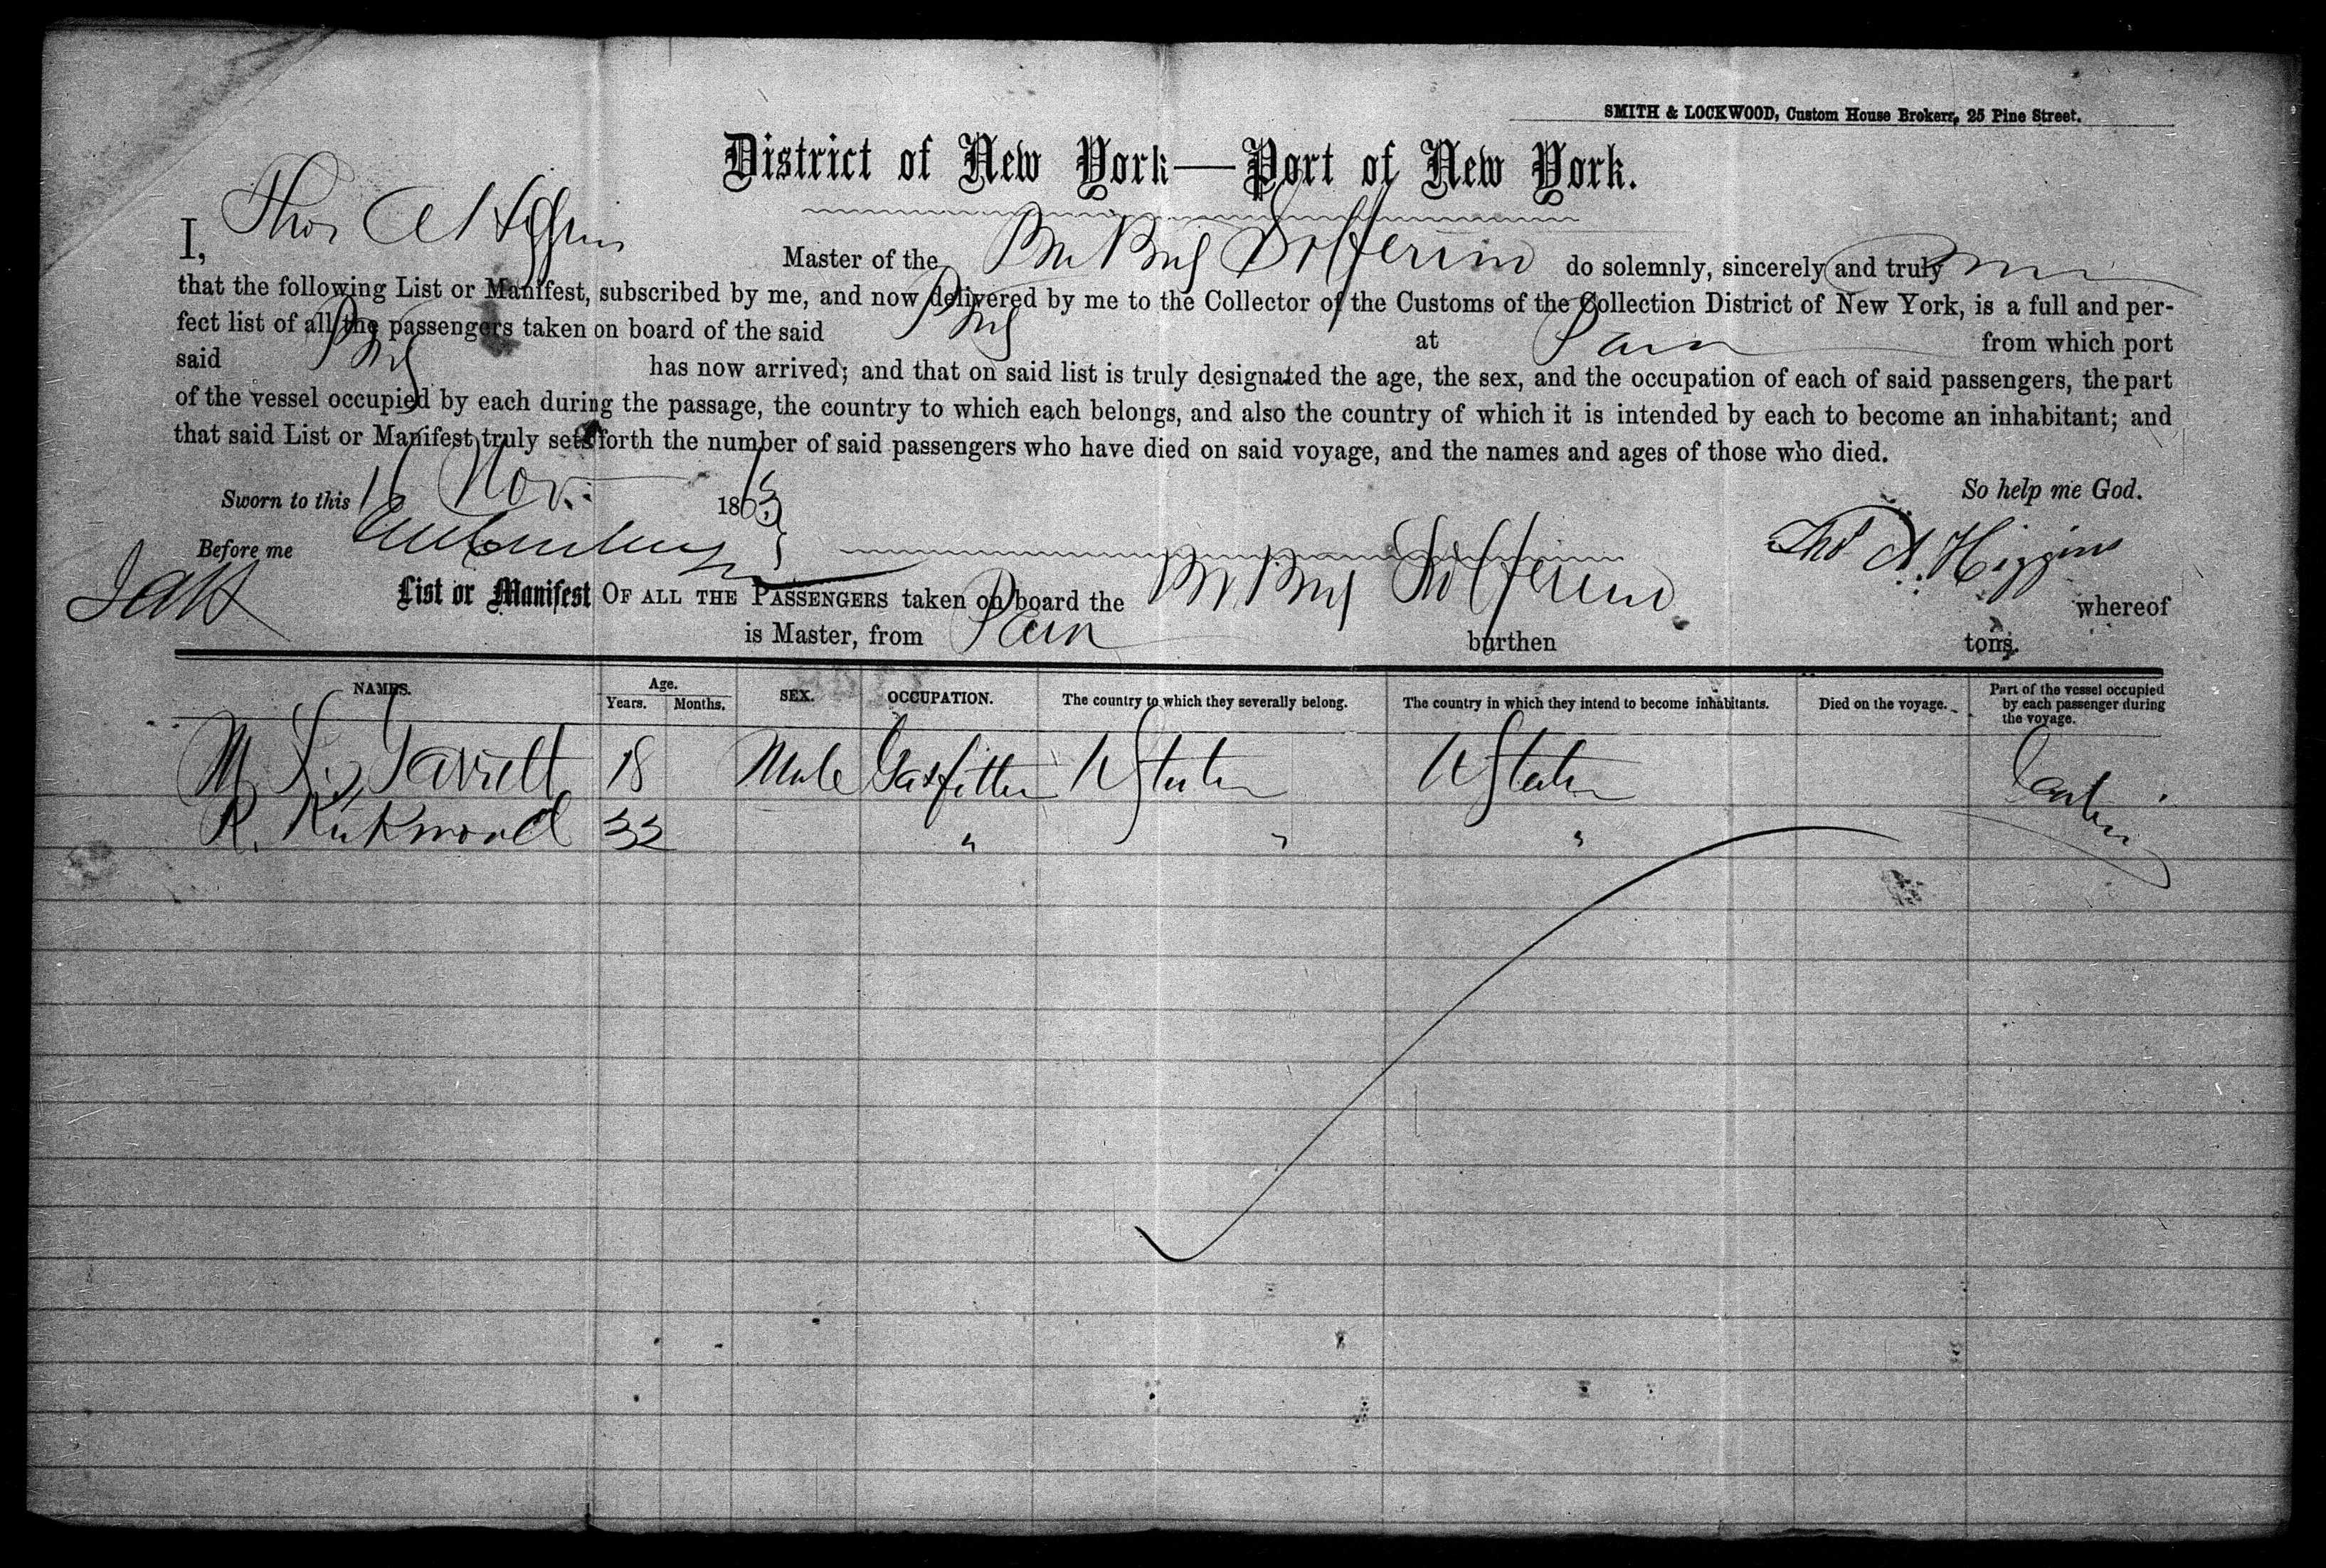 SMITH & LOCKWOOD, Custom House Brokers, 25 Pine Street.
District of New York—Port of New York.
I, Thos A Higgins Master of the Br Brig Solferino do solemnly, sincerely and truly
that the following List or Manifest, subscribed by me, and now delivered by me to the Collector of the Customs of the Collection District of New York, is a full and per-
fect list of all the passengers taken on board of the said Brig at Para from which port
said Brig has now arrived; and that on said list is truly designated the age, the sex, and the occupation of each of said passengers, the part
of the vessel occupied by each during the passage, the country to which each belongs, and also the country of which it is intended by each to become an inhabitant; and
that said List or Manifest truly sets forth the number of said passengers who have died on said voyage, and the names and ages of those who died.
Sworn to this 16 Nov. 1863 So help me God.
Before me Thos A. Higgins
List or Manifest OF ALL THE PASSENGERS taken on board the Br Brig Solferino whereof
is Master, from Para burthen tons.
NAMES. Age. Years. Months. SEX. OCCUPATION. The country to which they severally belong. The country in which they intend to become inhabitants. Died on the voyage. Part of the vessel occupied by each passenger during the voyage.
M. L. Garrett 18 Male Gasfitter U States U States Cabin
R. Kirkwood 32 " " "